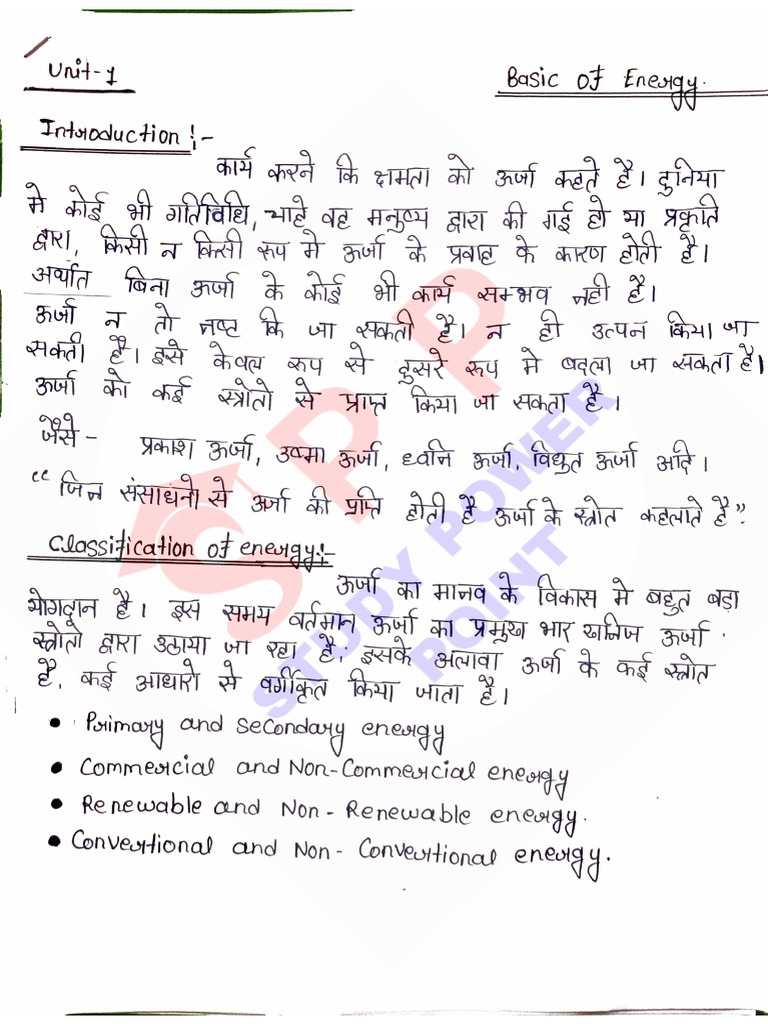 Unit-1
Basic of Energy.
Introduction :-
कार्य करने कि क्षमता को ऊर्जा कहते है। दुनिया
मे कोई भी गतिविधि, चाहे वह मनुष्य द्वारा की गई हो या प्रकृति
द्वारा, किसी न किसी रूप मे ऊर्जा के प्रवाह के कारण होती है।
अर्थात बिना ऊर्जा के कोई भी कार्य सम्भव नही है।
ऊर्जा न तो नष्ट कि जा सकती है। न ही उत्पन किया जा
सकती है। इसे केवल रूप से दुसरे रूप मे बदला जा सकता है।
ऊर्जा को कई स्त्रोतो से प्राप्त किया जा सकता है।
जैसे - प्रकाश ऊर्जा, उष्मा ऊर्जा, ध्वनि ऊर्जा, विधुत ऊर्जा आदि।
“जिन संसाधनो से ऊर्जा की प्रप्ति होती है ऊर्जा के स्त्रोत कहलाते है”.
Classification of energy :-
ऊर्जा का मानव के विकास मे बहुत बड़ा
योगदान है। इस समय वर्तमान ऊर्जा का प्रमुख भार खनिज ऊर्जा
स्त्रोतो द्वारा उठाया जा रहा है; इसके अलावा ऊर्जा के कई स्त्रोत
है, कई आधारो से वर्गीकृत किया जाता है।
• Primary and secondary energy
• Commercial and Non-Commercial energy
• Renewable and Non-Renewable energy.
• Convertional and Non-Convertional energy.
SPP
STUDY POWER
POINT